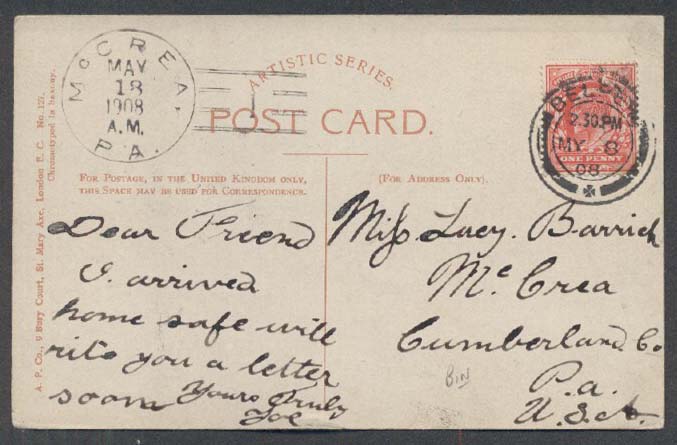 McCREA,
MAY
18
1908
A.M.
PA.
1
ARTISTIC SERIES.
POST CARD.
BELF
2.30.PM
MY 8
08
ONE PENNY
FOR POSTAGE, IN THE UNITED KINGDOM ONLY,
THIS SPACE MAY BE USED FOR CORRESPONDENCE.
(FOR ADDRESS ONLY).
A. P. Co., 9 Bury Court, St. Mary Axe, London E. C. No. 127.
Chromotyped in Saxony.
Dear Friend
I arrived
home safe will
rite you a letter
soon Yours Truly
Joe
Miss Lucy. Barrick
Mc Crea
Cumberland. Co
P.a.
U.S.A.
BIN